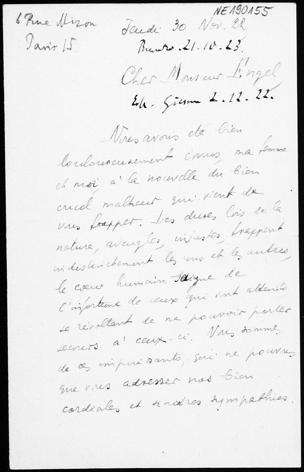 NE190155
6 Rue Mizon
Paris 15
Jeudi 30 Nov. 22
21.10.23.
Cher Monsieur Engel
2.12.22.
Nous avons été bien
douloureusement émus, ma femme
et moi à la nouvelle du bien
cruel malheur qui vient de
vous frapper. Des dures lois de la
nature, aveugles, injustes, frappent
indistinctement les uns et les autres,
le cœur humain saigne de
l'infortune de ceux qui sont atteints
se révoltent de ne pouvoir porter
secours à ceux-ci. Nous sommes
de ces impuissants, qui ne pouvons
que vous adresser nos bien
cordiales et sincères sympathies.